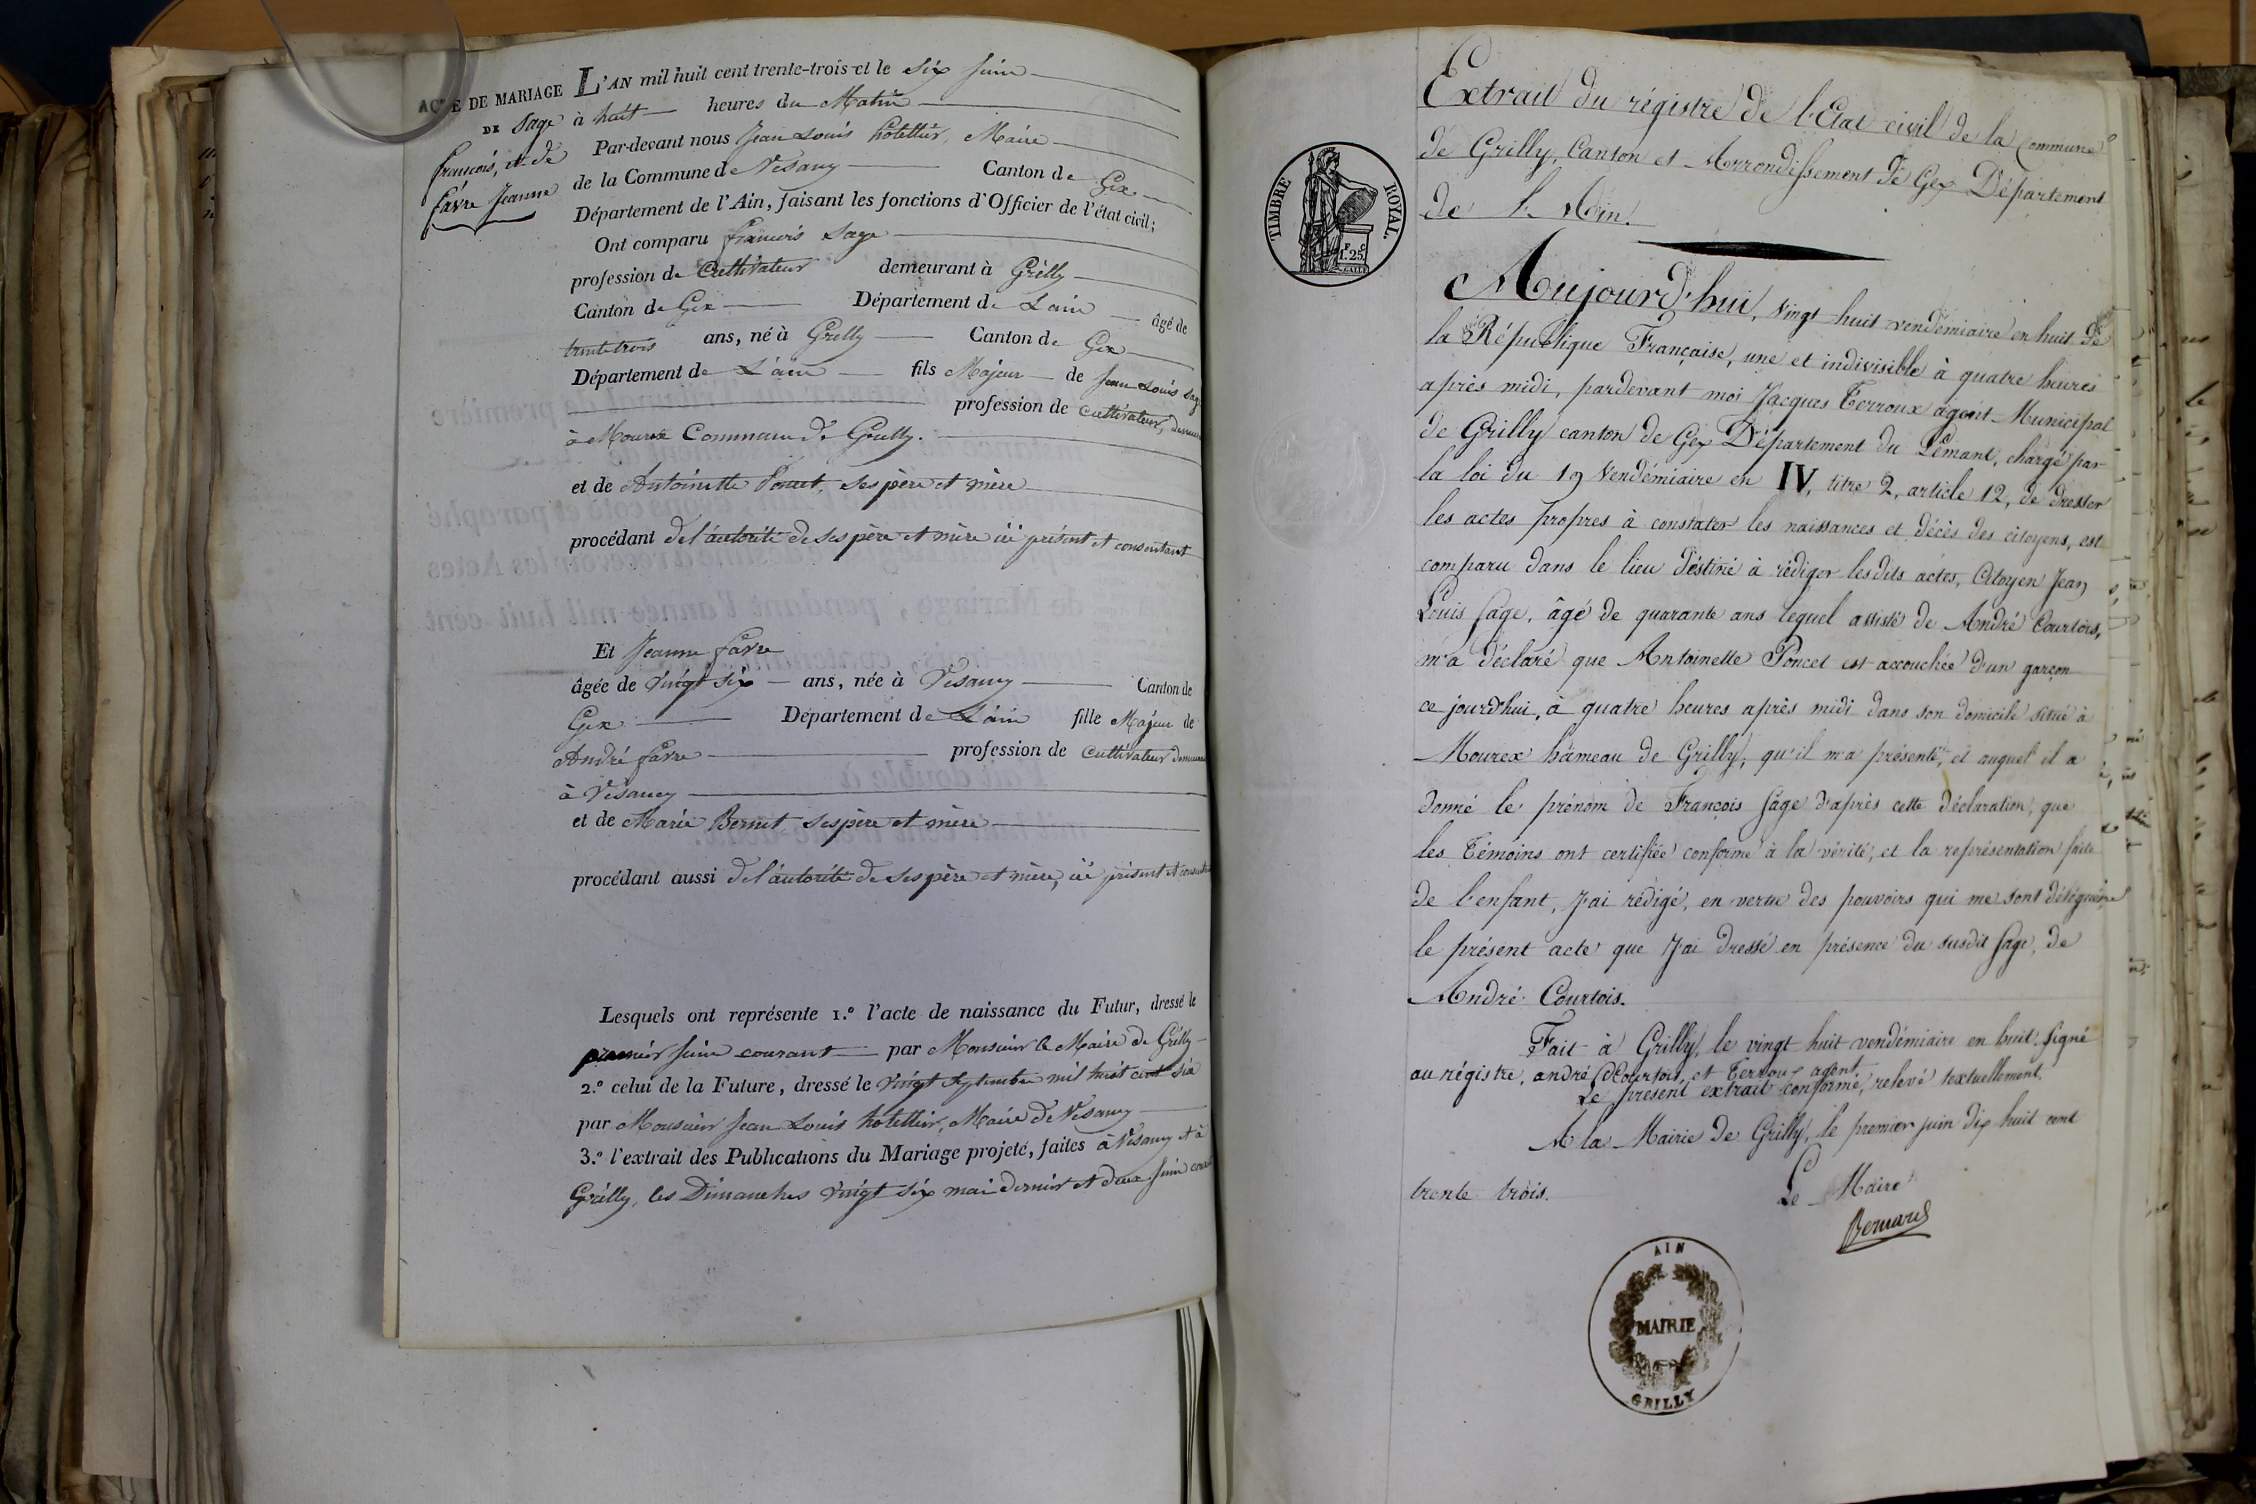 ACTE DE MARIAGE
DE Sage
francois, et de
favre Jeanne
L'AN mil huit cent trente-trois et le six juin
à huit heures du Matin
Par-devant nous Jean Louis hôtellier, Maire
de la Commune de Vésancy Canton de Gex
Département de l'Ain, faisant les fonctions d'Officier de l'état civil;
Ont comparu francois Sage
profession de Cultivateur demeurant à Grilly
Canton de Gex Département de L'ain âgé de
trente trois ans, né à Grilly Canton de Gex
Département de L'ain fils Majeur de Jean Louis Sage
profession de cultivateur,
à Mourex Commune de Grilly.
et de Antoinette Poncet, ses père et mère
procédant de l'autorité de ses père et mère ici présent et consentant
Et Jeanne favre
âgée de vingt six ans, née à Vésancy Canton de
Gex Département de L'ain fille Majeur de
André favre profession de cultivateur
à Vésancy
et de Marie Bernet ses père et mère
procédant aussi de l'autorité de ses père et mère, ici présent et
Lesquels ont représente 1.° l'acte de naissance du Futur, dressé le
premier juin courant par Monsieur le Maire de Grilly
2.° celui de la Future, dressé le vingt septembre mil huit cent six
par Monsieur Jean Louis hotellier, Maire de Vésancy
3.° l'extrait des Publications du Mariage projeté, faites à Vésancy et à
Grilly, les Dimanches vingt six mai dernier et deux juin
TIMBRE ROYAL.
F. C.
1. 25.
Extrait du régistre de l'Etat civil de la Commune
de Grilly, Canton et Arrondissement de Gex Département
de l'Ain.
Aujourd'hui, vingt huit vendémiaire en huit de
la République Française, une et indivisible à quatre heures
après midi, pardevant moi Jacques Terroux agent Municipal
de Grilly canton de Gex Département du Lémant, chargé par
la loi du 19 Vendémiaire en IV, titre 2, article 12, de dresser
les actes propres à constater les naissances et décès des citoyens, est
comparu dans le lieu déstiné à rédiger lesdits actes, Citoyen Jean
Louis Sage, âgé de quarante ans lequel assisté de André Courtois,
m'a déclaré que Antoinette Poncet est accouchée d'un garçon
ce jourd'hui, à quatre heures après midi dans son domicile situé à
Mourex hâmeau de Grilly, qu'il m'a présenté, et auquel il a
donné le prénom de François Sage d'après cette déclaration, que
les Témoins ont certifiée conforme à la vérité, et la représentation faite
de l'enfant, j'ai rédigé, en vertu des pouvoirs qui me sont délégués,
le présent acte que j'ai dressé en présence du susdit Sage, de
André Courtois.
Fait à Grilly, le vingt huit vendémiaire en huit. Signé
au régistre, andré Courtois, et Terroux agent.
Le présent extrait conforme, relevé textuellement.
A la Mairie de Grilly, le premier juin dix huit cent
trente trois.
Le Maire
Bernard
AIN
MAIRIE
GRILLY